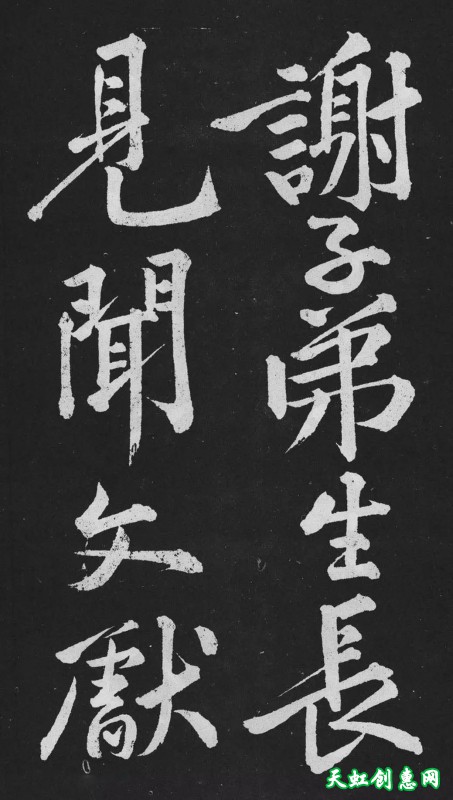 謝子弟生長
見聞文獻
天虹创惠网